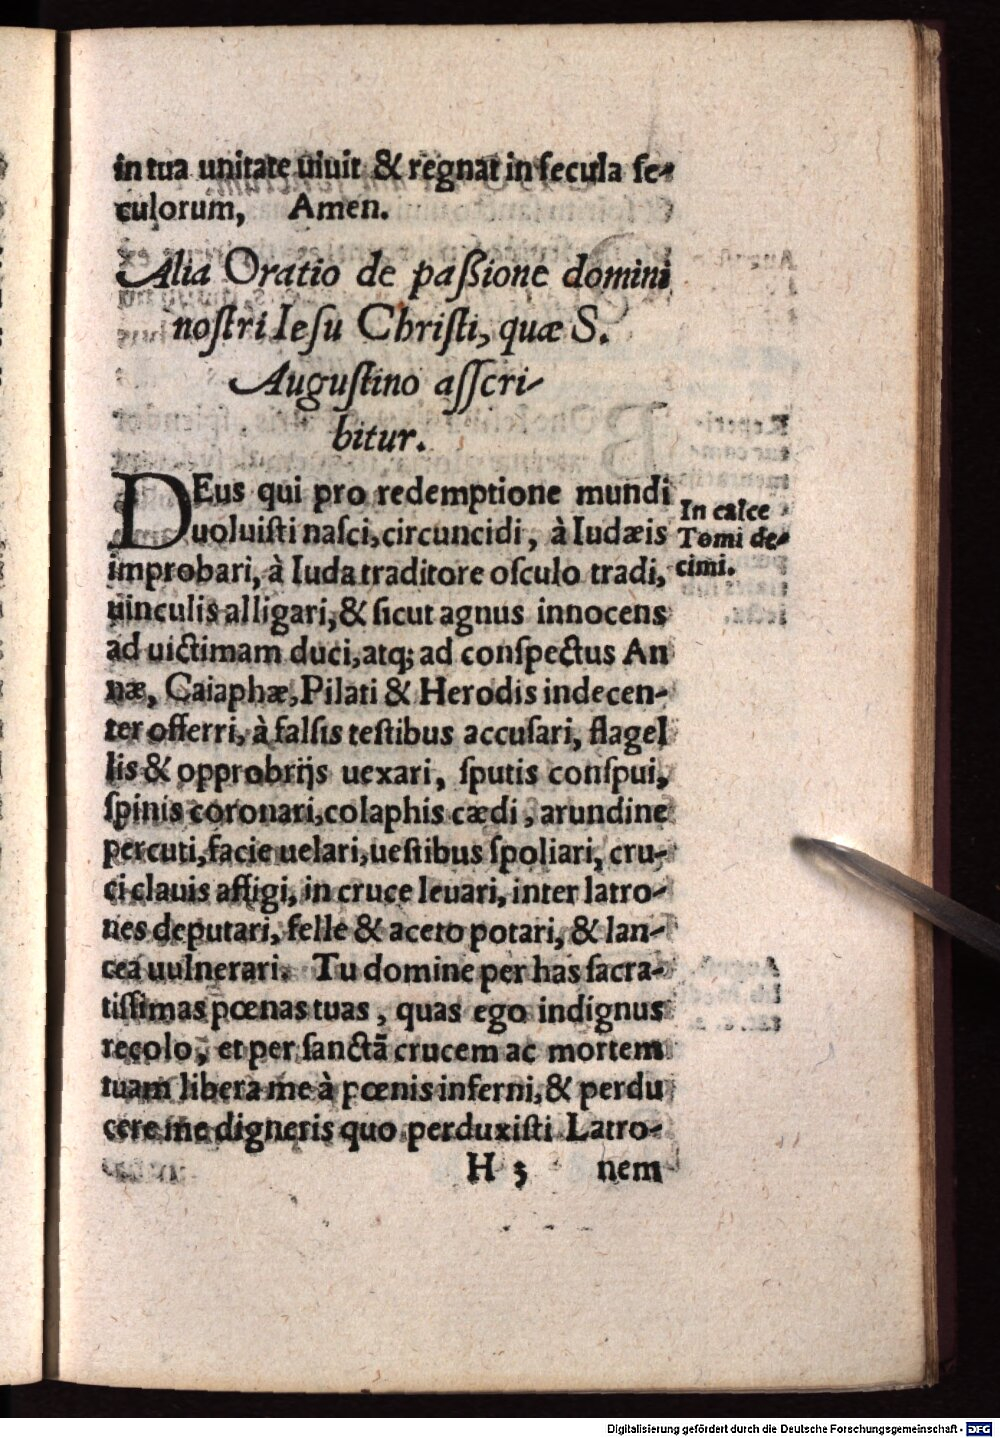 in tua unitate uiuit & regnat in ſecula ſe-
culorum, Amen.
Alia Oratio de paßione domini
noſtri Ieſu Chriſti, quæ S.
Auguſtino aſſcri-
bitur.
DEus qui pro redemptione mundi
uoluiſti naſci, circuncidi, à Iudæis
improbari, à Iuda traditore oſculo tradi,
uinculis alligari, & ſicut agnus innocens
ad uictimam duci, atq; ad conſpectus An
næ, Caiaphæ, Pilati & Herodis indecen-
ter offerri, à falſis teſtibus accuſari, flagel
lis & opprobrijs uexari, ſputis conſpui,
ſpinis coronari, colaphis cædi, arundine
percuti, facie uelari, ueſtibus ſpoliari, cru-
ci clauis affigi, in cruce leuari, inter latro-
nes deputari, felle & aceto potari, & lan-
cea uulnerari. Tu domine per has ſacra-
tiſſimas pœnas tuas, quas ego indignus
recolo, et per ſanctã crucem ac mortem
tuam libera me à pœnis inferni, & perdu
cere me digneris quo perduxiſti Latro-
H 5 nem
In calce
Tomi de-
cimi.
Digitalisierung gefördert durch die Deutsche Forschungsgemeinschaft - DFG